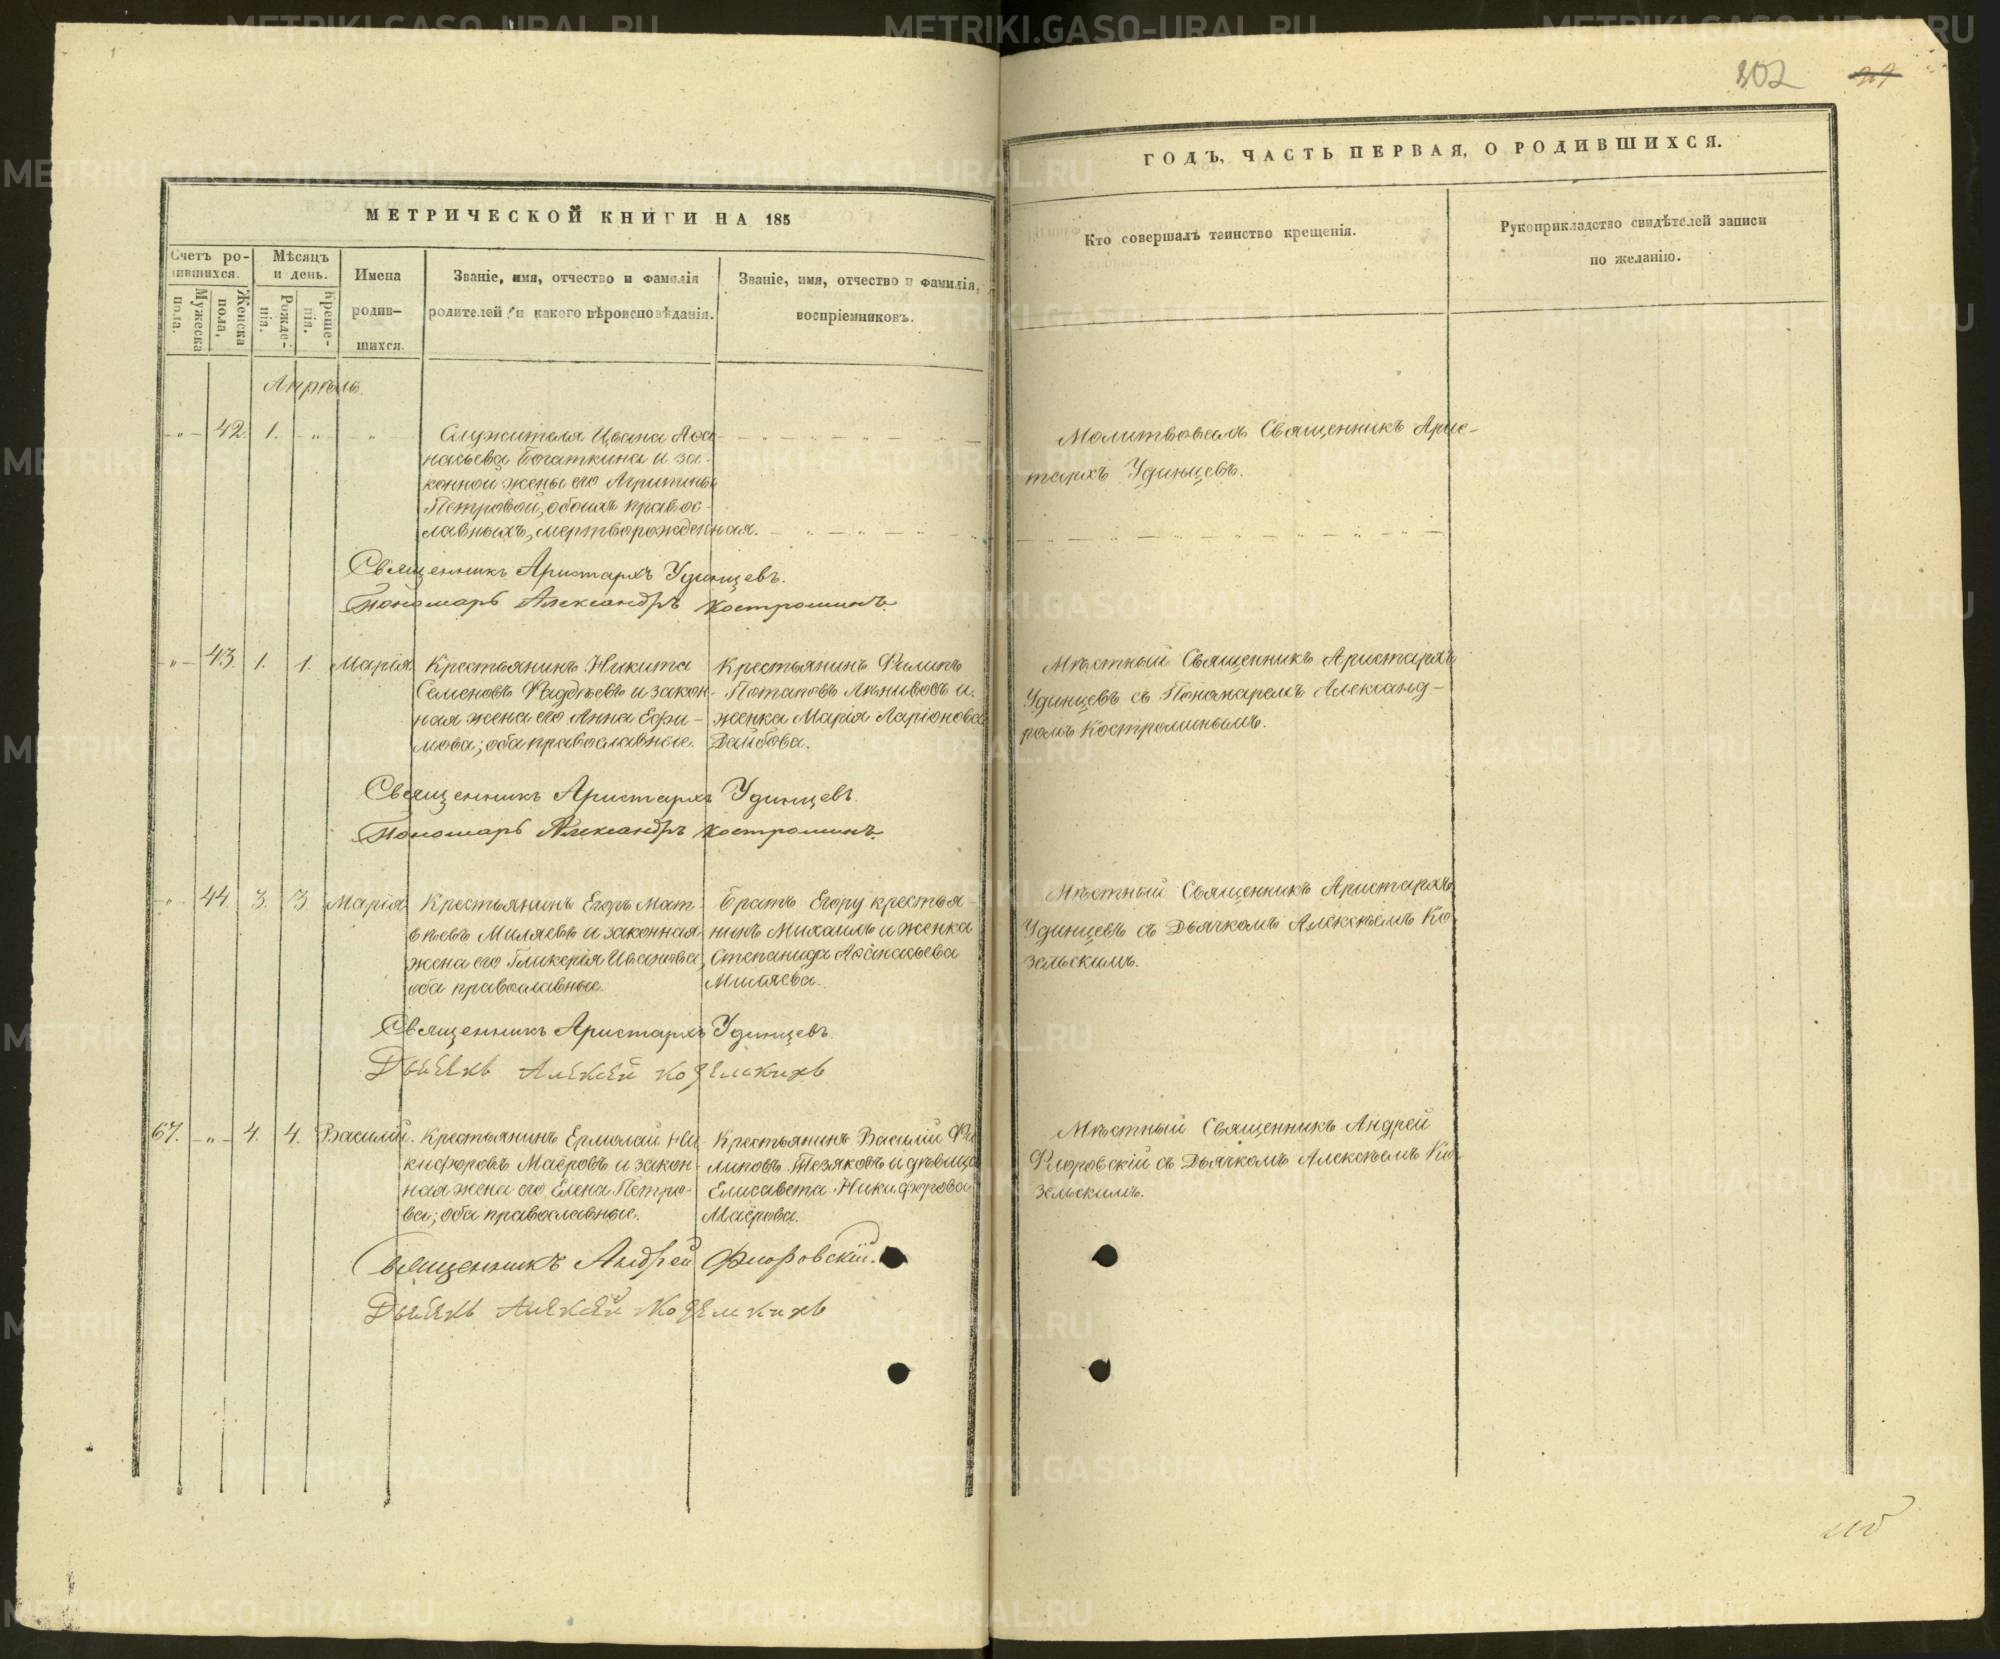 302
МЕТРИЧЕСКОЙ КНИГИ НА 185
ГОДЪ, ЧАСТЬ ПЕРВАЯ, О РОДИВШИХСЯ.
Счетъ ро-
дившихся.
Мужеска пола.
Женска пола.
Мѣсяцъ
и день.
Рожде-
нія.
Креще-
нія.
Имена
родив-
шихся.
Званіе, имя, отчество и фамилія
родителей и какого вѣроисповѣданія.
Званіе, имя, отчество и фамилія,
воспріемниковъ.
Кто совершалъ таинство крещенія.
Рукоприкладство свидѣтелей записи
по желанію.
Апрѣль.
42. 1.
Служителя Ивана Аѳа-
насьева Богаткина и за-
конной жены его Агрипины
Петровой, обоихъ правос-
лавныхъ, мертворожденная.
Молитвовалъ Священникъ Арис-
тархъ Удинцевъ.
Священникъ Аристархъ Удинцевъ.
Пономарь Александръ Костроминъ.
43. 1. 1. Марія.
Крестьянинъ Никита
Семеновъ Фадѣевъ и закон-
ная жена его Анна Ефи-
мова; оба православные.
Крестьянинъ Филипъ
Потаповъ и
женка Марія Ларіонова
Мѣстный Священникъ Аристархъ
Удинцевъ съ Пономаремъ Александ-
ромъ Костроминымъ.
Священникъ Аристархъ Удинцевъ.
Пономарь Александръ Костроминъ.
44. 3. 3. Марія.
Крестьянинъ Егоръ Мат-
вѣевъ Миляевъ и законная
жена его Гликерія Иванова,
оба православные.
Братъ Егору крестья-
нинъ Михаилъ и женка
Степанида Аѳанасьева
Миляева.
Мѣстный Священникъ Аристархъ
Удинцевъ съ Дьячкомъ Алексѣемъ Ко-
зельскимъ.
Священникъ Аристархъ Удинцевъ.
Дьячекъ Алексей Козельскихъ
67. 4. 4. Василій.
Крестьянинъ Ермолай Ни-
кифоровъ Маёровъ и закон-
ная жена его Елена Петро-
ва; оба православные.
Крестьянинъ Василій Фи-
липовъ Тезяковъ и дѣвица
Елисавета Никифорова
Маёрова.
Мѣстный Священникъ Андрей
Флоровскій съ Дьячкомъ Алексѣемъ Ко-
зельскимъ.
Священникъ Андрей Флоровскій.
Дьячекъ Алексей Козельскихъ
METRIKI.GASO-URAL.RU